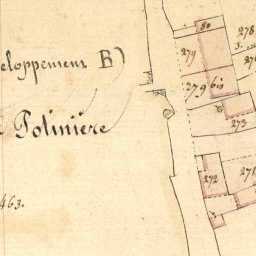 80
278
3.
279
eloppement B)
279 bis
Polinière
273
272
271
463.